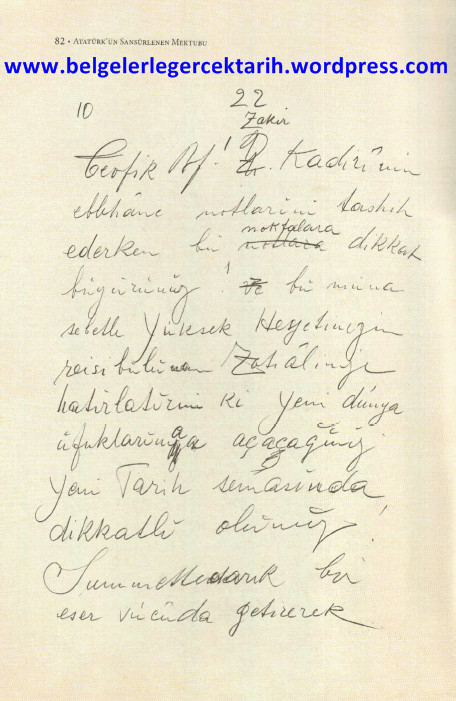 82 • ATATÜRK'ÜN SANSÜRLENEN MEKTUBU
www.belgelerlegercektarih.wordpress.com
22
10
Zakir
Tevfik Bf! Kadirî'nin
notlarini tashih
noktalara
ederken bu notlara dikkat
büyürünüz! ve bu müna
sebetle Yüksek Heyetinizin
reisi bulunan Zatiâlinize
hatirlatirim ki yeni dünya
üfuklarina açacağiniz
yeni Tarih semasinda
dikkatli olünüz!
Summettedarik bir
eser vücüda getirerek